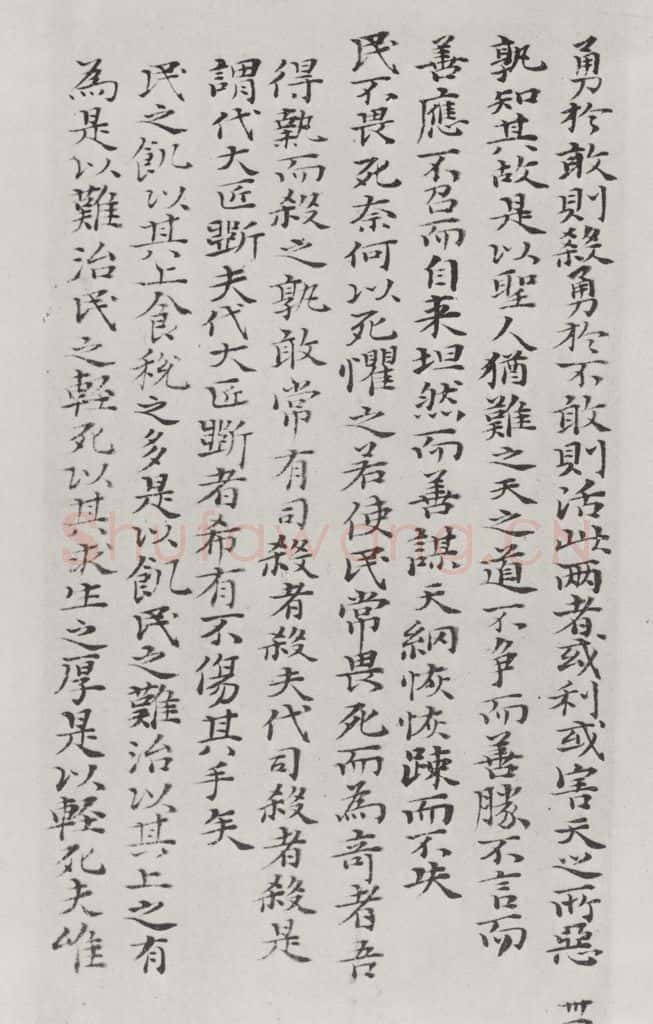 勇扵敢則殺勇扵不敢則活此两者或利或害天之所惡
孰知其故是以聖人猶難之天之道不争而善勝不言而
善應不召而自来坦然而善謀天網恢恢踈而不失
民不畏死奈何以死懼之若使民常畏死而為竒者吾
得執而殺之孰敢常有司殺者殺夫代司殺者殺是
謂代大匠斲夫代大匠斲者希有不傷其手矣
民之飢以其上食税之多是以飢民之難治以其上之有
為是以難治民之軽死以其求生之厚是以軽死夫唯
Shufawang.CN